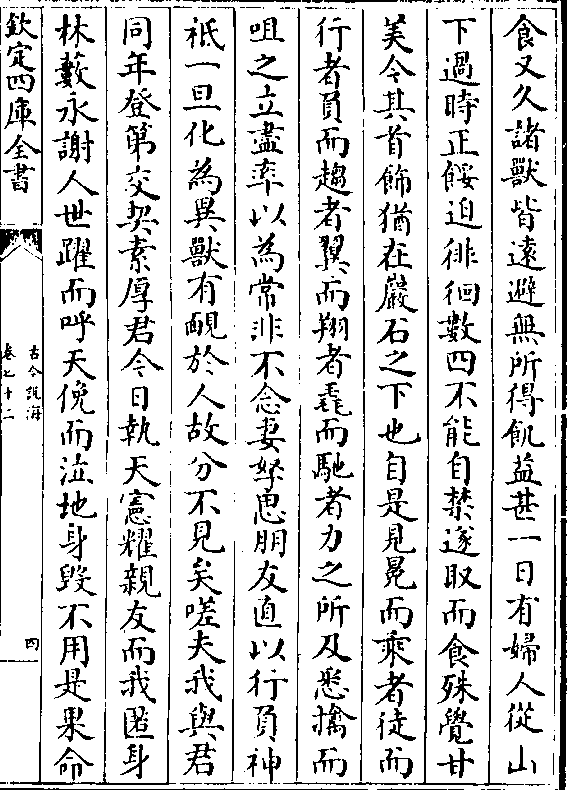 食又久諸獸皆逺避無所得飢益甚一日有婦人從山
下過時正餒迫徘徊數四不能自禁遂取而食殊覺甘
美今其首飾猶在巖石之下也自是見冕而乘者徒而
行者負而趨者翼而翔者毳而馳者力之所及悉擒而
咀之立盡率以為常非不念妻孥思朋友直以行負神
祗一旦化為異獸有靦於人故分不見矣嗟夫我與君
同年登第交契素厚君今日執天憲耀親友而我匿身
林藪永謝人世躍而呼天俛而泣地身毀不用是果命
欽定四庫全書
古今說海
卷七十二
四